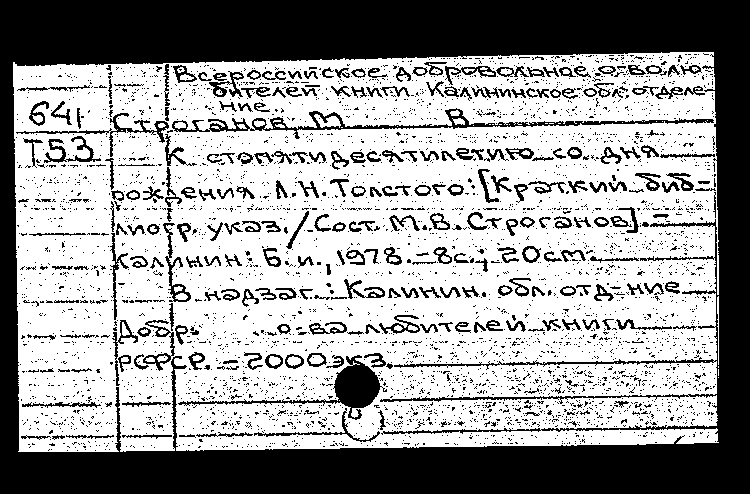 Всероссийское добровольное о-во лю-
бителей книги. Калининское обл. отделе-
ние.
641
Строганов, М В
Т53
К стопятидесятилетию со дня
рождения Л.Н. Толстого: [Краткий биб-
лиогр. указ. / Сост. М.В. Строганов]. -
Калинин: Б. и., 1978. - 8с.; 20см.
В надзаг.: Калинин. обл. отд-ние
Добр. о-ва любителей книги
РСФСР. - 2000 экз.